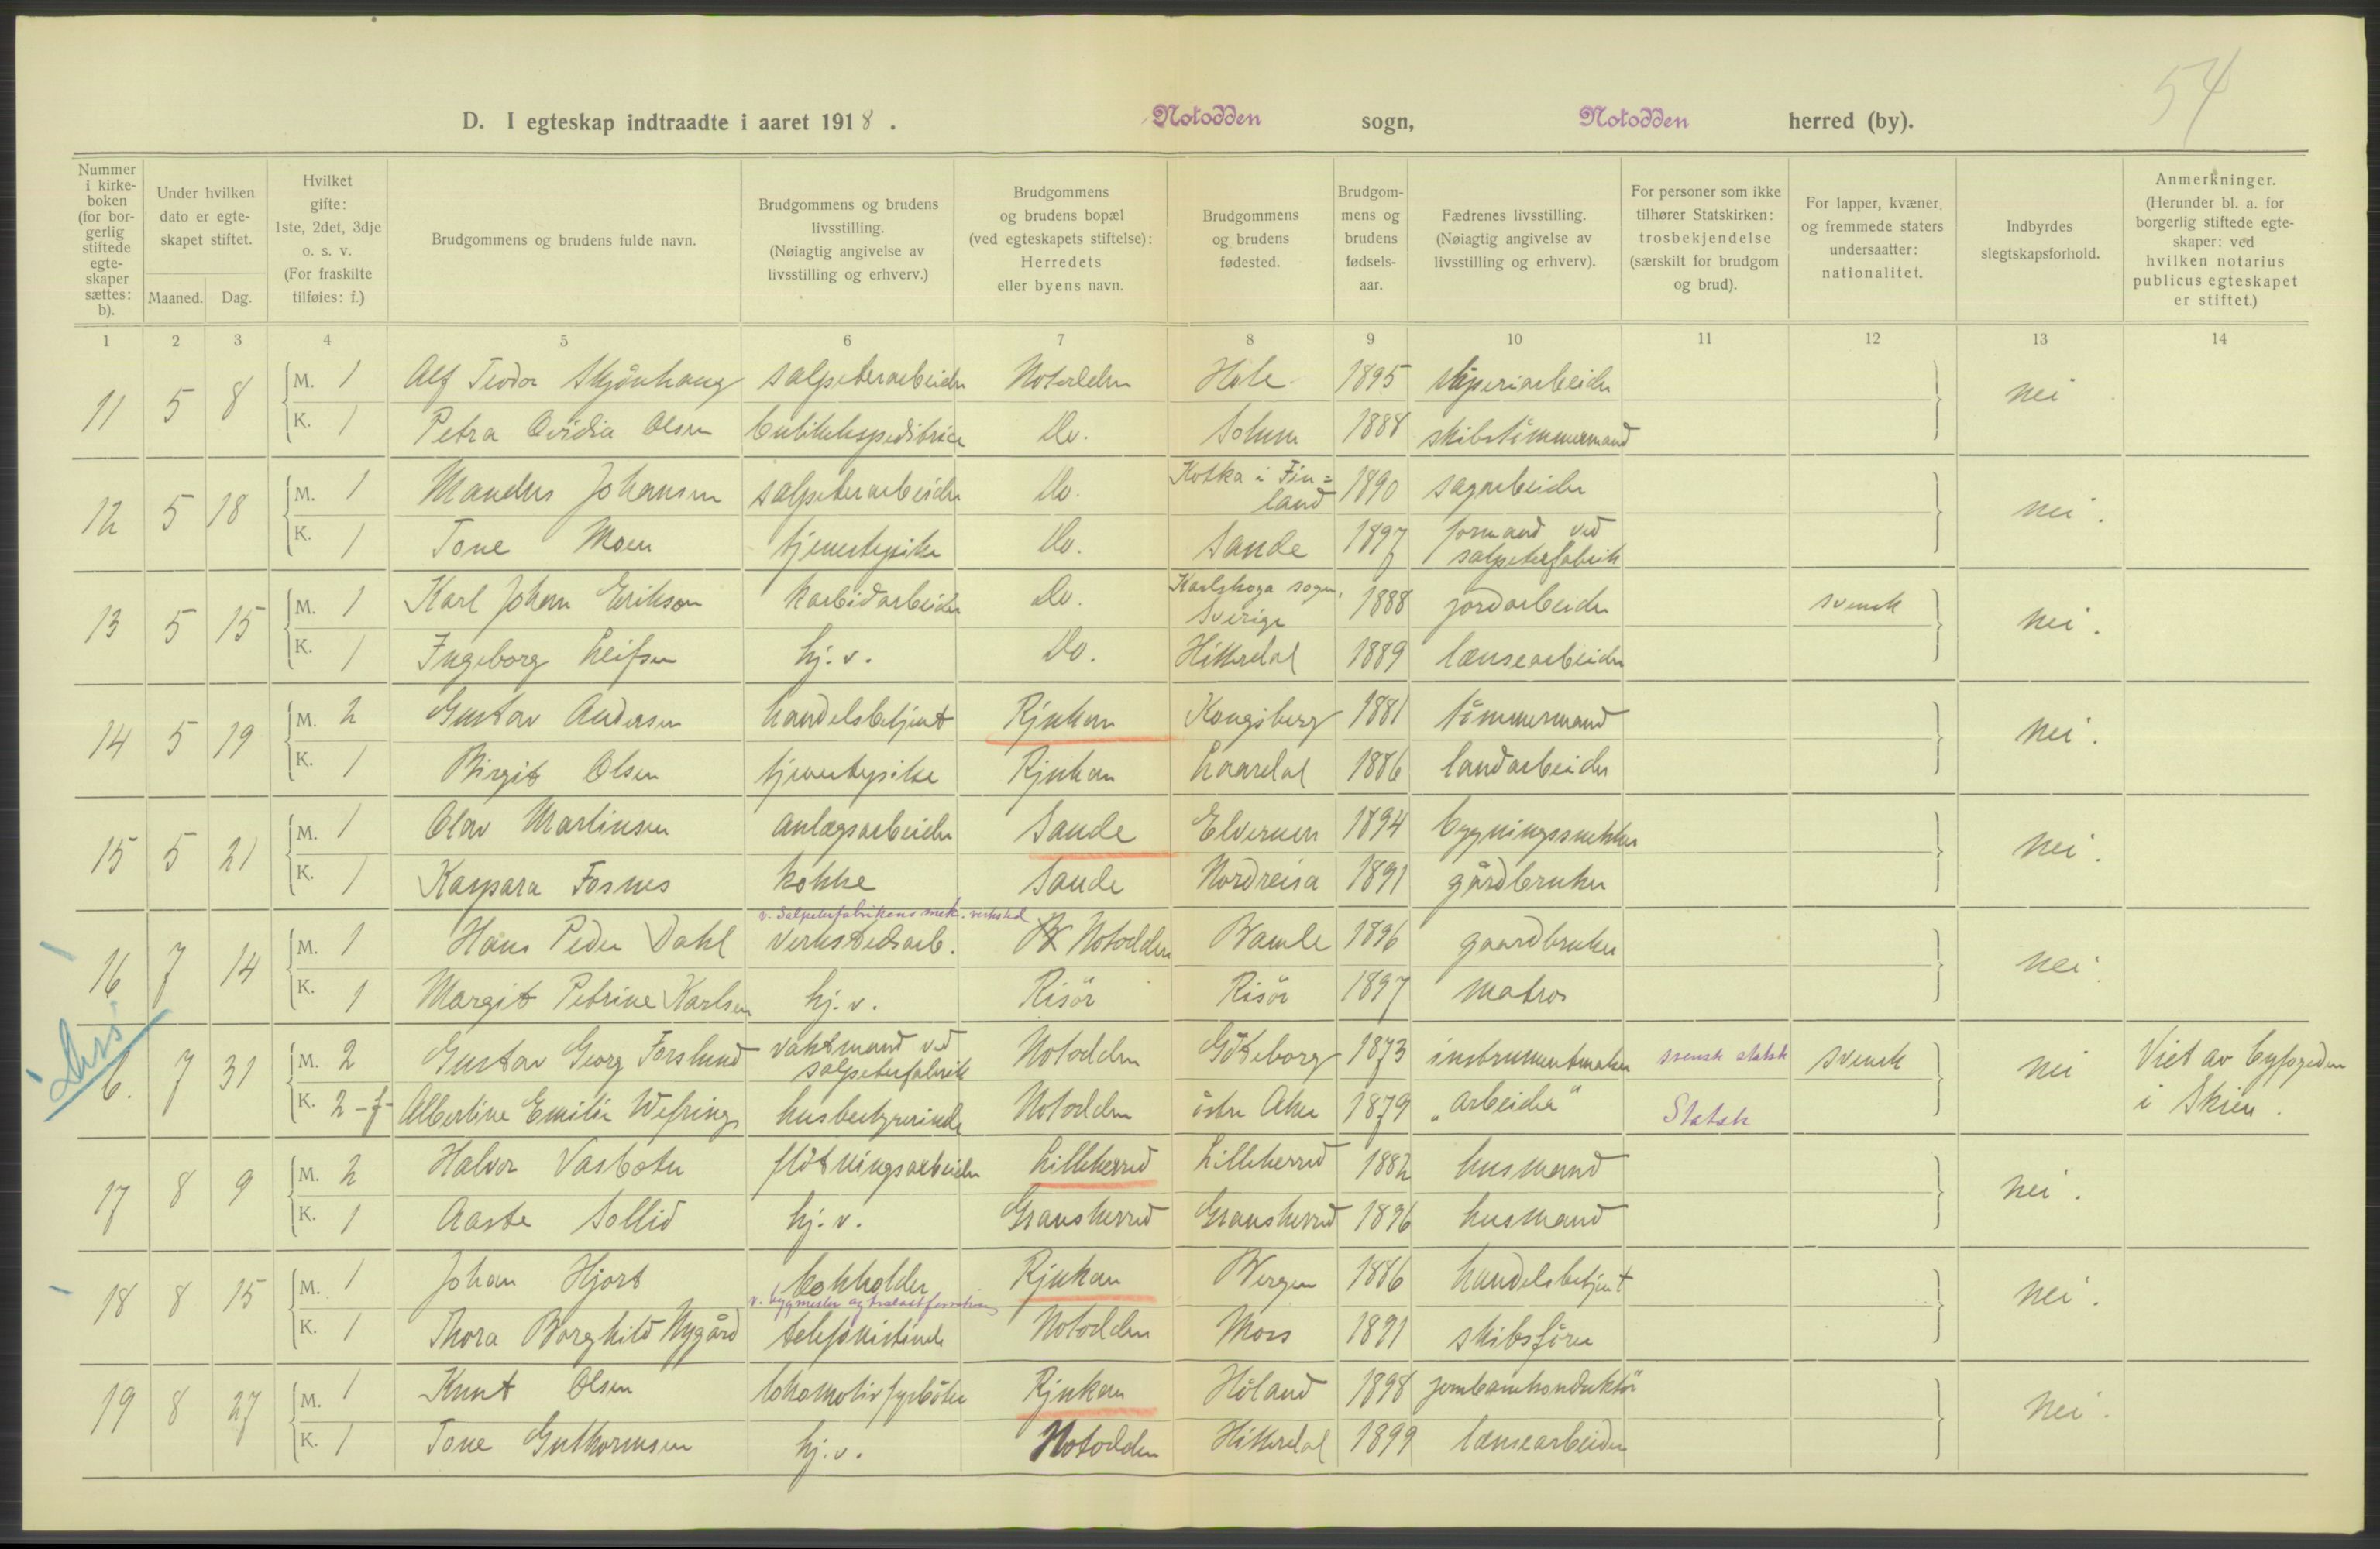 54
D. I egteskap indtraadte i aaret 1918. Notodden sogn, Notodden herred (by).
Nummer i kirke-boken (for bor-gerlig stiftede egte-skaper sættes: b).
Under hvilken dato er egte-skapet stiftet.
Maaned. Dag.
Hvilket gifte: 1ste, 2det, 3dje o. s. v. (For fraskilte tilføies: f.)
Brudgommens og brudens fulde navn.
Brudgommens og brudens livsstilling. (Nøiagtig angivelse av livsstilling og erhverv.)
Brudgommens og brudens bopæl (ved egteskapets stiftelse): Herredets eller byens navn.
Brudgommens og brudens fødested.
Brudgom-mens og brudens fødsels-aar.
Fædrenes livsstilling. (Nøiagtig angivelse av livsstilling og erhverv).
For personer som ikke tilhører Statskirken: trosbekjendelse (særskilt for brudgom og brud).
For lapper, kvæner, og fremmede staters undersaatter: nationalitet.
Indbyrdes slegtskapsforhold.
Anmerkninger. (Herunder bl. a. for borgerlig stiftede egte-skaper: ved hvilken notarius publicus egteskapet er stiftet.)
1 2 3 4 5 6 7 8 9 10 11 12 13 14
11 5 8 M. 1 Alf Teodor Skjønhaug salpeterarbeider Notodden Hole 1895 sliperiarbeider nei
K. 1 Petra Ovidia Olsen butikekspeditrice Do. Solum 1888 skibstømmermand
12 5 18 M. 1 Mandus Johansen salpeterarbeider Do. Kotka i Fin=land 1890 sagarbeider nei.
K. 1 Tone Moen tjenestepike Do. Sande 1897 formand ved salpeterfabrik
13 5 15 M. 1 Karl Johan Erikson karbidarbeider Do. Karlskoga sogn, Sverige 1888 jordarbeider svensk nei.
K. 1 Ingeborg Leifsen hj. v. Do. Hitterdal 1889 lænsearbeider
14 5 19 M. 2 Gustav Andersen handelsbetjent Rjukan Kongsberg 1881 tømmermand nei.
K. 1 Birgit Olsen tjenestepike Rjukan Laardal 1886 landarbeider
15 5 21 M. 1 Olav Martinsen anlægsarbeider Sande Elverum 1894 bygningssnekker nei.
K. 1 Kaspara Fosnes kokke Sande Nordreisa 1891 gårdbruker
v. Salpeterfabrikens mek. verksted
16 7 14 M. 1 Hans Peder Dahl verkstedsarb. Notodden Bamle 1896 gaardbruker nei.
K. 1 Margit Petrine Karlsen hj. v. Risör Risör 1897 matros
b. 7 31 M. 2 Gustav Georg Forslund vaktmand ved salpeterfabrik Notodden Göteborg 1873 instrumentmaker svensk statsk svensk nei Viet av byfogden
K. 2 -f- Albertine Emilie Wefring husbestyrerinde Notodden östre Aker 1879 "arbeider" Statsk i Skien.
17 8 9 M. 2 Halvor Vasbotn fløtningsarbeider Lilleherred Lilleherred 1882 husmand nei.
K. 1 Aaste Sollid hj. v. Gransherred Gransherred 1896 husmand
18 8 15 M. 1 Johan Hjort bokholder Rjukan Bergen 1886 handelsbetjent nei.
v. bygmester
K. 1 Thora Borghild Nygård telefonistinde Notodden Moss 1891 skibsfører
19 8 27 M. 1 Knut Olsen lokomotivfyrbøter Rjukan Höland 1898 jernbanekonduktör nei.
K. 1 Tone Guthormsen hj. v. Notodden Hitterdal 1899 lænsearbeider